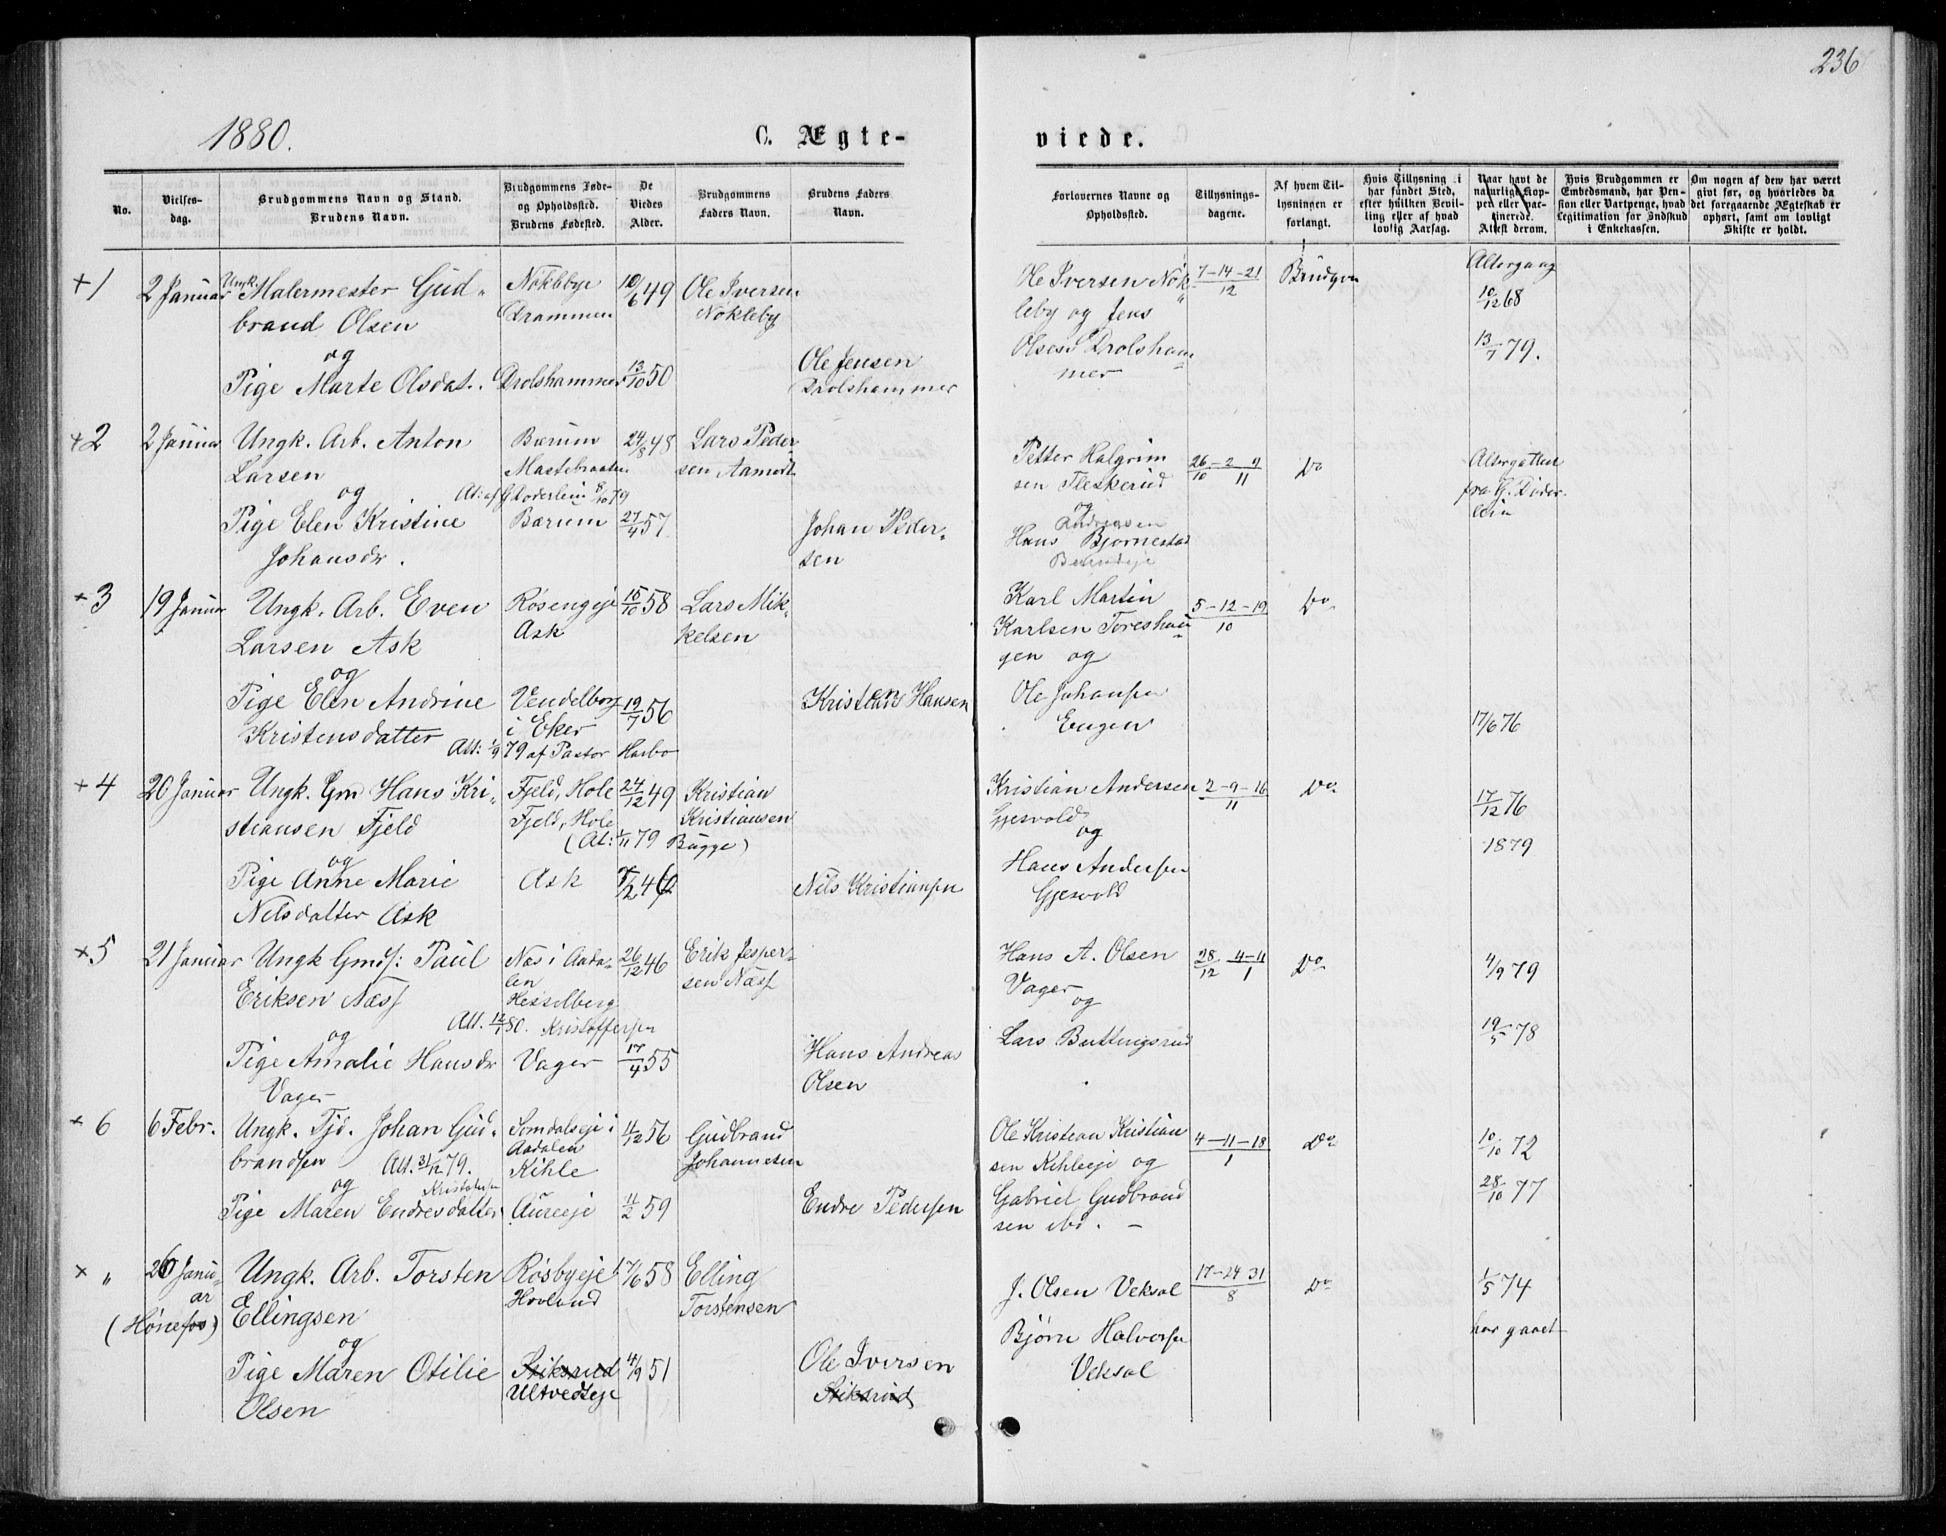 236
1880.
C. Ægte-
viede.
No.
Vielses-
dag.
Brudgommens Navn og Stand.
Brudens Navn.
Brudgommens Føde-
og Opholdssted.
Brudens Fødested.
De
Viedes
Alder.
Brudgommens
Faders Navn.
Brudens Faders
Navn.
Forlovernes Navne og
Opholdssted.
Tillysnings-
dagene.
Af hvem Til-
lysningen er
forlangt.
Hvis Tillysning i
har fundet Sted,
efter hvilken Bevil-
ling eller af hvad
lovlig Aarsag.
Naar havt de
naturlige Kop-
per eller vac-
cinerede.
Attest derom.
Hvis Brudgommen er
Embedsmand, har Pen-
sion eller Vartpenge, hvad
Legitimation for Indskud
i Enkekassen.
Om nogen af dem har været
gift før, og hvorledes da
det foregaaende Ægteskab er
ophørt, samt om lovligt
Skifte er holdt.
+1
2 Januar
Ungk. Malermester Gud-
brand Olsen
og
Pige Marte Olsdat.
Nøklebye
Drammen
Drolshammer
10/6 49
13/10 50
Ole Iversen
Nøkleby
Ole Jensen
Drolshammer
Ole Iversen Nøk-
leby og Jens
Olsen Drolsham-
mer
7-14-21/12
Brudgom
Altergang
10/12 68
13/7 79.
+2
2 Januar
Ungk. Arb. Anton
Larsen
og
Pige Elen Kristine
Johansdr.
Bærum
Mastebraaten
Bærum
24/8 48
27/4 57
Lars Peder-
sen Aamodt
Johan Peder-
sen
Petter Halgrim
sen Fleskerud
og
Andreasen
Hans Bjørnestad
26/10-2-9/11
Do
Altergatten
+3
19 Januar
Ungk. Arb. Even
Larsen Ask
og
Pige Elen Andrine
Kristensdatter
Att: 1/9 79 af Pastor Harbo
Røsengeje
Ask
Vendelborg
i Eker
15/10 58
19/7 56
Lars Mik-
kelsen
Kristen Hansen
Karl Martin
Karlsen Toreshau-
gen og
Ole Johansen
Engen
5-12-19/10
Do
17/6 76
+4
20 Januar
Ungk. Gm Hans Kri-
stiansen Fjeld
og
Pige Anne Marie
Nilsdatter Ask
Fjeld, Hole
Fjeld, Hole
(At: 1/11 79 Bugge)
Ask
24/12 49
Kristian
Kristiansen
Nils Kristiansen
Kristian Andersen
Gjesvold
og
Hans Andersen
Gjesvold
2-9-16/11
Do
17/12 76
1879
+5
21 Januar
Ungk Gmds: Paul
Eriksen Næss
Att. 12/1 80. Kristoffersen
og
Pige Amalie Hansdr
Vager
Næs i Aada-
len
Hesselberg
Vager
26/12 46
17/4 55
Erik Jesper-
sen Næss
Hans Andreas
Olsen
Hans A. Olsen
Vager
og
Lars Buttingsrud
28/12 4-11/1
Do
4/9 79
19/5 78
+6
6 Febr.
Ungk. Tjd. Johan Gud-
brandsen
Att. 31/12 79.
og
Pige Maren Endresdatter
Somdalseje i
Aadalen
Kihle
Aureeje
11/12 56
11/2 59
Gudbrand
Johannesen
Endre Pedersen
Ole Kristian Kristian
sen Kihleeje og
Gabriel Gudbrand
sen ibd. -
4-11-18/1
Do
10/10 72
28/10 77
+ "
26 Janu-
ar
(Hønefos)
Ungk. Arb. Torsten
Ellingsen
og
Pige Maren Otilie
Olsen
Røsbyeje
Hovlund
Stiksrud
Ultvedteje
7/6 58
4/9 51
Elling
Torstensen
Ole Iversen
Stiksrud
J. Olsen Veksal
Bjørn Halvorsen
Veksal
17-24 31/8
Do
1/5 74
har gaaet